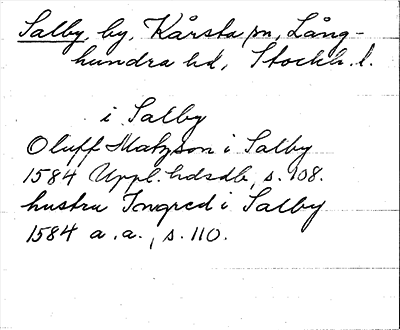 Salby, by, Kårsta sn, Lång-
hundra hd, Stockh. l.
i Salby
Oluff Matzson i Salby
1584 Uppl. hdsdb, s. 108.
hustru Ingred i Salby
1584 a.a., s. 110.